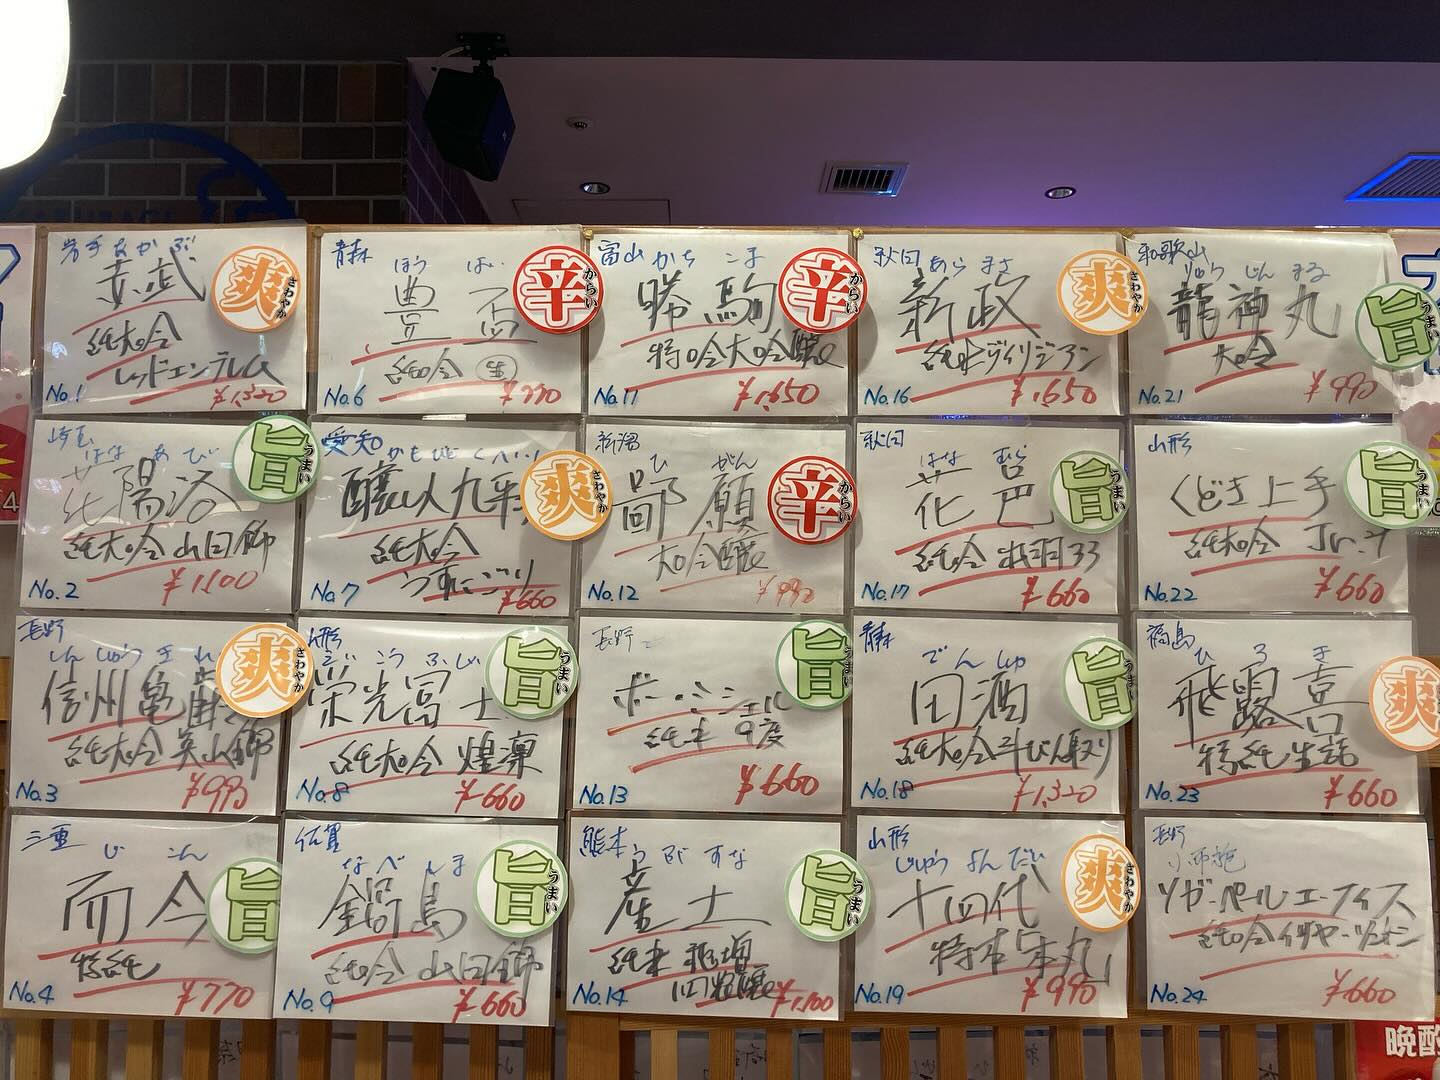 岩手 あかぶ
赤武
純大吟
レッドエンブレム
No.1 ¥1,320
爽 さわやか
青森
ほう はい
豊盃
純吟
No.6 ¥770
辛 からい
富山 かち こま
勝駒
特吟大吟醸
No.11 ¥1,650
辛 からい
秋田 あらまさ
新政
No.16 ¥1,650
爽 さわやか
和歌山
りゅうじんまる
龍神丸
大吟
No.21 ¥990
旨 うまい
埼玉
はな あ び
花陽浴
純大吟 山田錦
No.2 ¥1,100
旨 うまい
愛知 かもしびとくへいじ
醸し人九平次
純大吟
うすにごり
No.7 ¥660
爽 さわやか
新潟
ひ がん
鄙願
大吟醸
No.12 ¥990
辛 からい
秋田
はな むら
花邑
純吟 出羽33
No.17 ¥660
旨 うまい
山形
くどき上手
純大吟 Jr.
No.22 ¥660
旨 うまい
長野
しんしゅうきれ
信州亀齢
純大吟 美山錦
No.3 ¥990
爽 さわやか
山形
えいこうふじ
栄光冨士
純大吟 煌凜
No.8 ¥660
旨 うまい
長野
ボー・ミッシェル
純米 9度
No.13 ¥660
旨 うまい
青森
でんしゅ
田酒
純大吟 斗びん取り
No.18 ¥1,320
旨 うまい
福島
ひ ろ き
飛露喜
特純 生詰
No.23 ¥660
爽
三重
じ こん
而今
特純
No.4 ¥770
旨
佐賀
なべ しま
鍋島
純吟 山田錦
No.9 ¥660
旨 うまい
熊本 うぶすな
産土
純米 穂増
No.14 ¥1,100
旨 うまい
山形
じゅうよんだい
十四代
特本 本丸
No.19 ¥990
爽 さわやか
長野
ソガ・ペール エ フィス
純吟
No.24 ¥660
晩酌